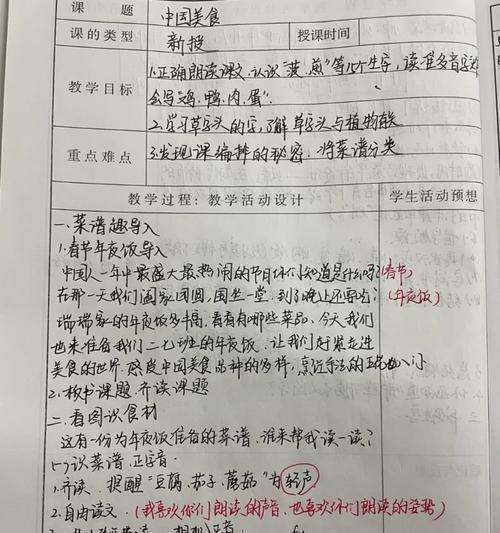 课 题 中国美食
课的类型 新授 授课时间
教学目标 1.正确朗读课文,认识"菠、煎"等15个生字,读准多音字
会写"鸡、鸭、肉、蛋"。
2.学习草字头的字,了解草字头与植物有关
重点难点 3.发现课编排的秘密,将菜谱分类
教学过程:教学活动设计 学生活动预想
一、菜谱趣导入
1.春节年夜饭导入
中国人一年中最盛大最热闹的节日你们知道是什么吗?(春节)
在那一天我们阖家团圆,围坐一堂,到了晚上还要吃?(年夜饭)
瑞瑞家的年夜饭多丰富,看看有哪些菜品,今天我们
也来准备我们二七班的年夜饭,让我们赶紧走进
美食的世界,感受中国美食品种的多样,烹饪手法的
2.板书课题,齐读课题
二、看图识食材
这有一份为年夜饭准备的菜谱,谁来帮我读一读?
(一)识菜谱,正字音
1.齐读,提醒"豆腐、茄子、蘑菇"为轻声
2.自由读文,(我喜欢你们朗读的声音,也喜欢你们朗读的姿势)